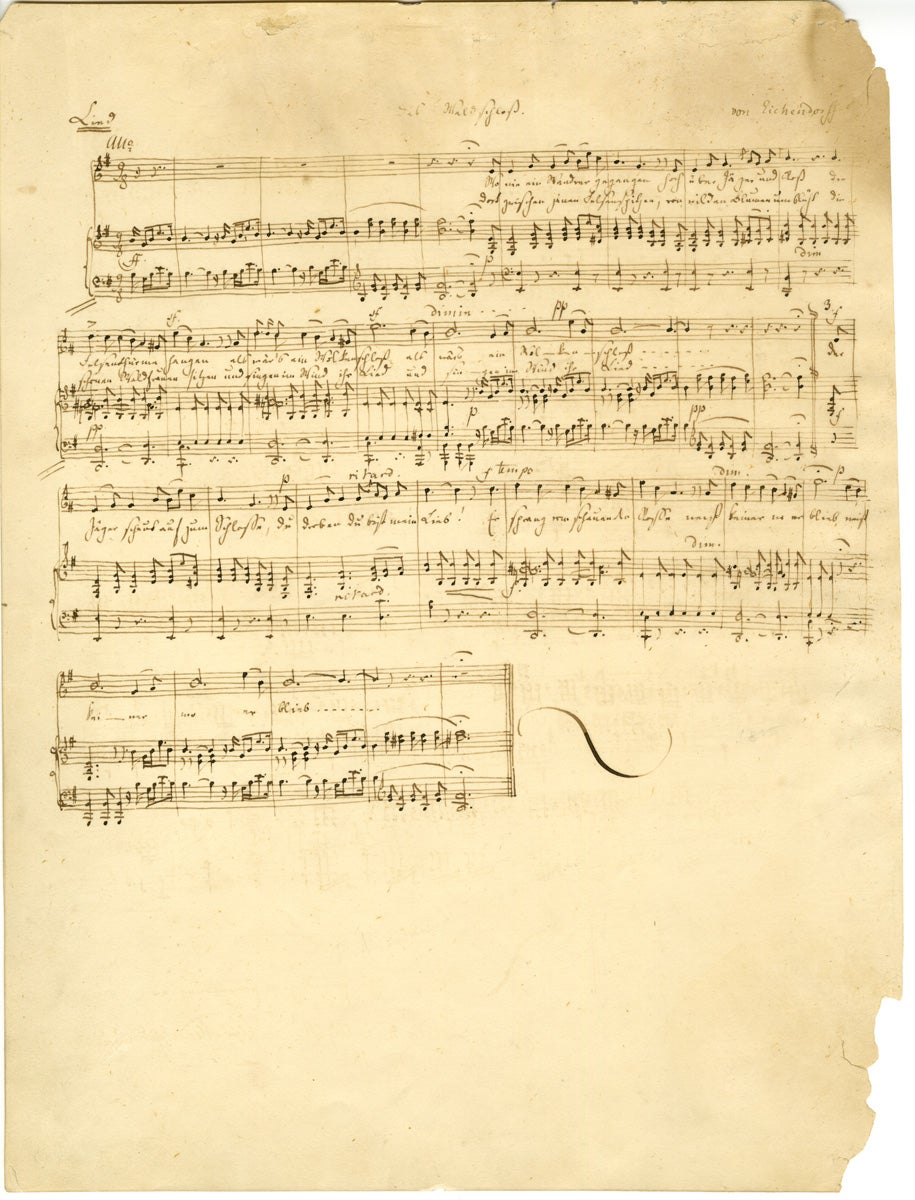 Lied
Das Waldschloß.
von Eichendorff
Allo
Wo noch kein Wandrer gegangen hoch über Jäger und Roß die
dort zwischen jenen Felsenspitzen, von wilden Blumen umblüht die
ff.
p
dim
ff
ff
dimin
pp
3
f
Felsenthürme hangen als wär's ein Wolkenschloß als wärs ein Wol ken schloß
der
schönen Waldfrauen sitzen und singen im Wind ihr Lied und sin gen im Wind ihr Lied
pp
p
pp
f
p
ritard.
f tempo
dim:
p
Jäger schaut auf zum Schlosse, du droben du bist mein Lieb! Er sprang vom scheuenden Rosse weiß keiner wo er blieb weiß
dim.
ritard.
kei ner wo er blieb